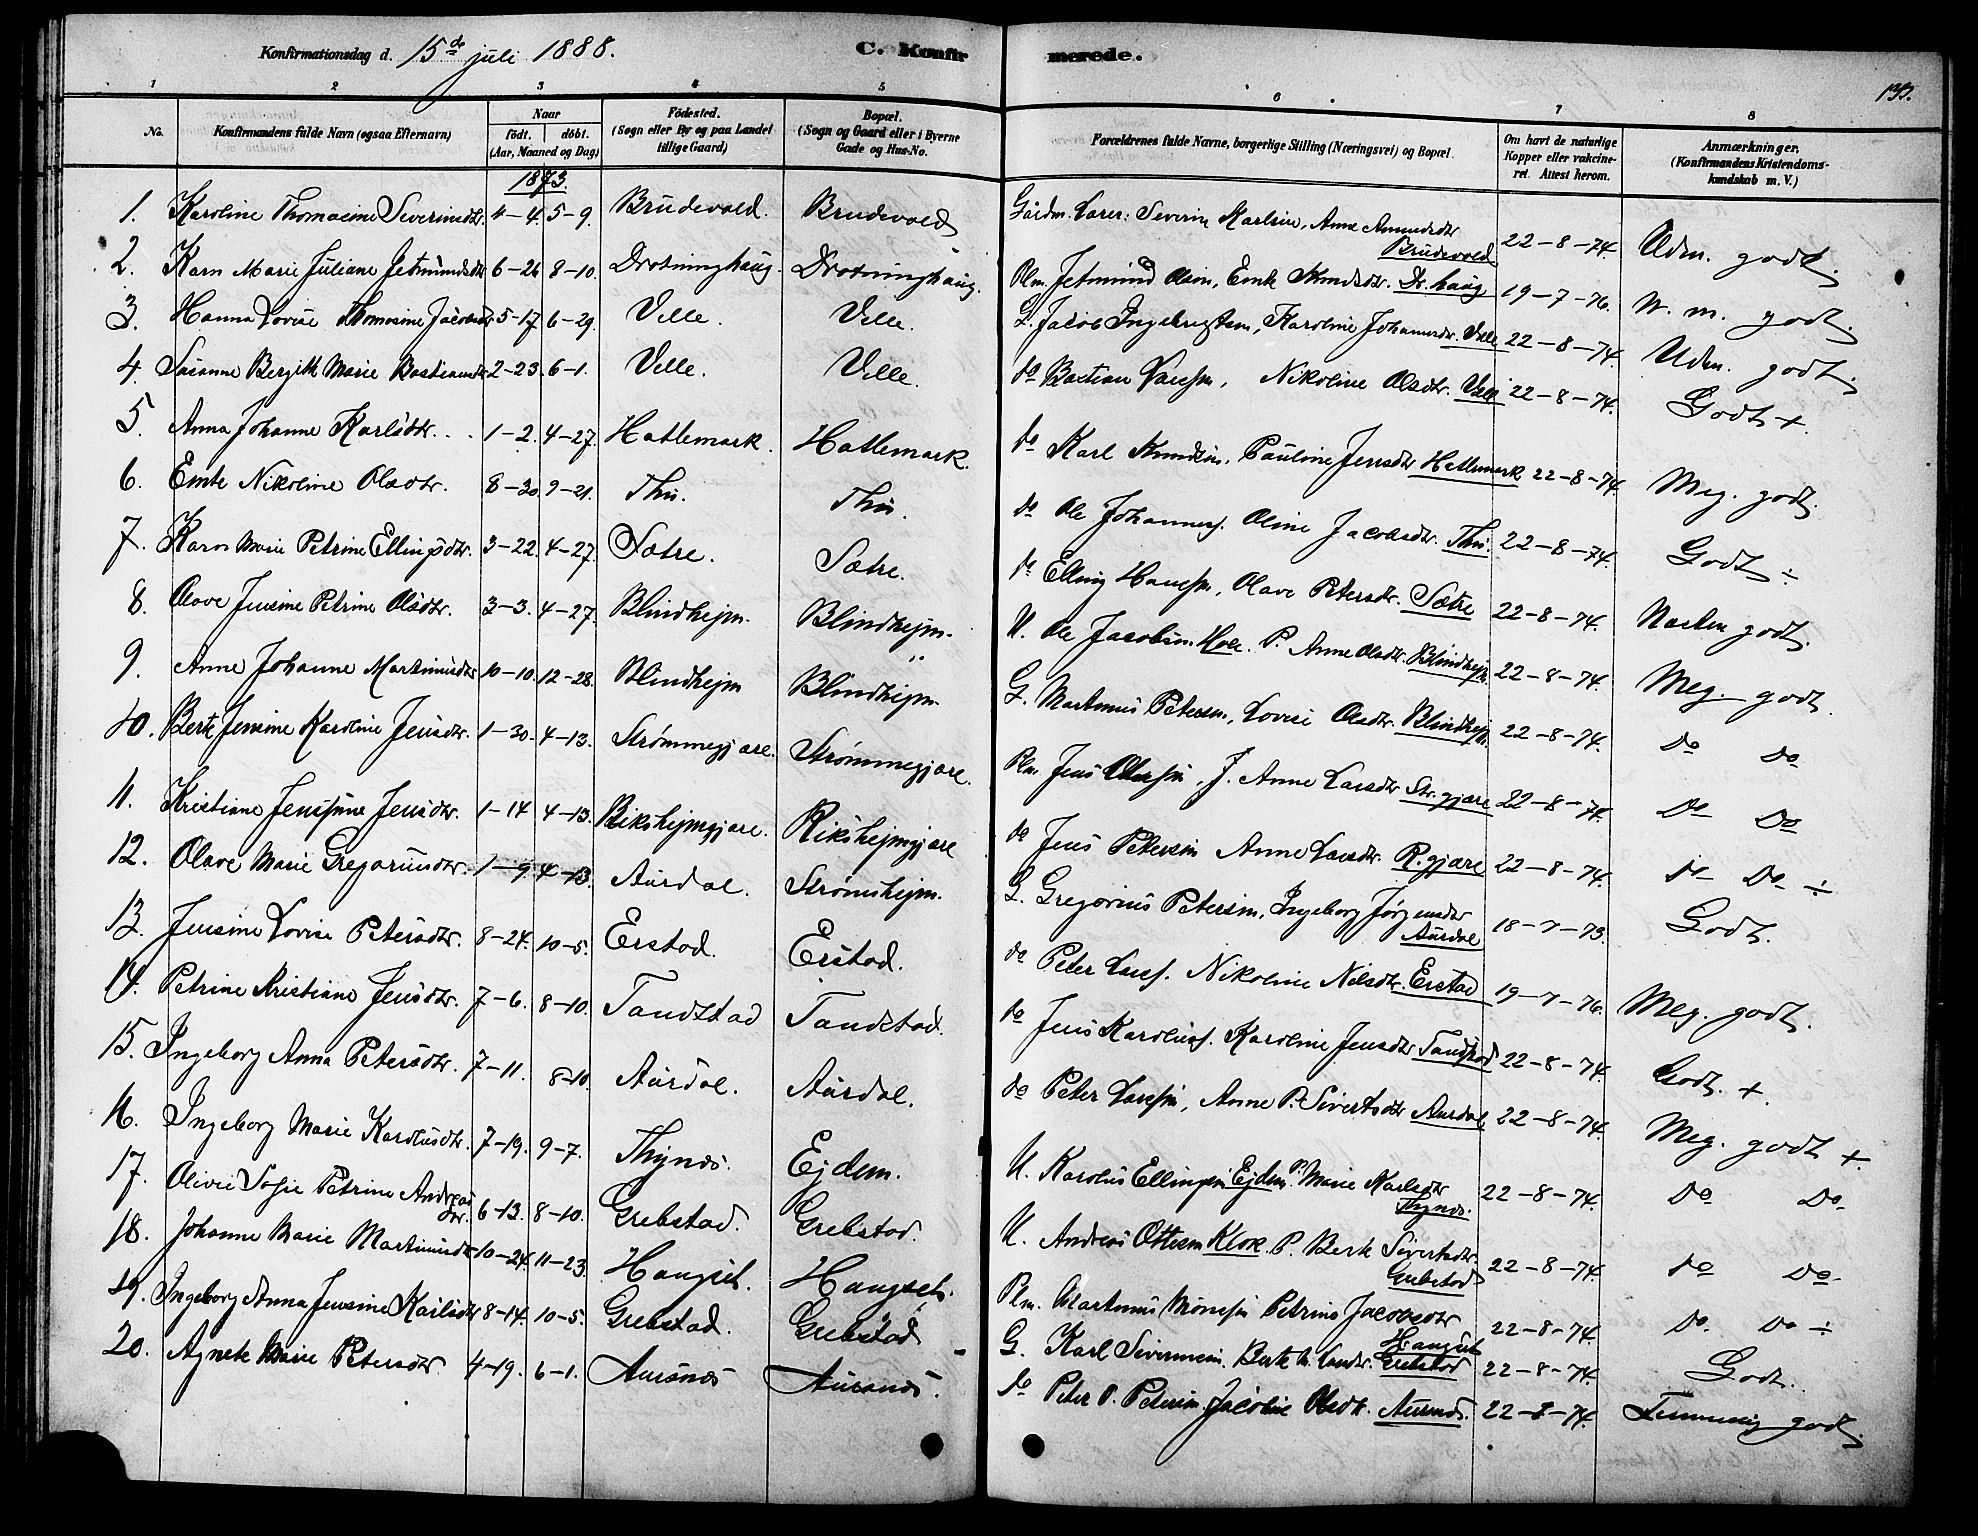 Konfirmationsdag d. 15de juli 1888.
C. Konfir merede.
1 2 3 4 5 6 7 8
No. Konfirmandens fulde Navn (ogsaa Efternavn) Naar født. døbt. (Aar, Maaned og Dag) Fødested. (Sogn eller By og paa Landet tillige Gaard) Bopæl. (Sogn og Gaard eller i Byerne Gade og Hus-No. Forældrenes fulde Navne, borgerlige Stilling (Næringsvei) og Bopæl. Om havt de naturlige Kopper eller vakcineret. Attest herom. Anmærkninger. (Konfirmandens Kristendomskundskab m. V.)
1873.
1. Karoline Thomasine Severinsdtr. 4-4. 5-9. Brudevold. Brudevold Gårdm. Severin Karlsen, Anne Amundsdtr Brudevold 22-8-74. Udm. godt.
2. Karn Marie Juliane Jetmundsdtr 6-26 8-10. Drotninghaug. Drotninghaug. Plm. Jetmund Olsen, Emte Knudsdtr. Dr. haug 19-7-76. U. m. godt.
3. Hanna Lovise Thomasine Jacobsdtr 5-17 6-29. Velle. Velle. G. Jacob Ingebrigtsen, Karoline Johannesdtr. Velle 22-8-74. Udm. godt.
4. Susanne Bergith Marie Bastiansdtr 2-23. 6-1. Velle. Velle. do Bastian Larssen, Nikoline Olsdtr. Velle 22-8-74. Godt +
5. Anna Johanne Karlsdtr. 1-2. 4-27. Hatlemark. Hatlemark. do Karl Knudsen, Pauline Jensdtr Hatlemark 22-8-74. Meg. godt.
6. Emte Nikoline Olsdtr. 8-30. 9-21. Thu. Thu. do Ole Johanness. Oline Jacobsdtr. Thu. 22-8-74. Godt ÷
7. Karn Marie Petrine Ellingsdtr. 3-22. 4-27. Sætre. Sætre. do Elling Hanssen, Olave Petersdtr. Sætre 22-8-74. Næsten godt.
8. Olave Jensine Petrine Olsdtr. 3-3. 4-27. Blindhejm. Blindhejm. U. Ole Jacobsen Hole. P. Anne Olsdtr. Blindhejm 22-8-74. Meg. godt.
9. Anne Johanne Martinusdtr 10-10. 12-28. Blindhejm Blindhejm. G. Martinus Petersen, Lovise Olsdtr. Blindhejm. 22-8-74. do do
10. Berte Jensine Karoline Jensdtr. 1-30. 4-13. Strømmegjære. Strømmegjære. Plm. Jens J. Anne Larsdtr Str. gjære 22-8-74. do do
11. Kristiane Jenssine Jensdtr. 1-14 4-13. Rikshejmgjære. Rikshejmgjære do Jens Petersen Anne Larsdtr. R. gjære 22-8-74. do do ÷
12. Olave Marie Gregoriusdtr. 1-9. 4-13. Aurdal. Strømshejm. G. Gregorius Petersen, Ingeborg Jørgensdtr Aurdal 18-7-73. Godt.
13. Jensine Lovise Petersdtr. 8-24. 10-5. Erstad. Erstad. do Peter Larss. Nikoline Nilsdtr. Erstad 19-7-76. Meg. godt.
14. Petrine Kristiane Jensdtr. 7-6. 8-10. Tandstad Tandstad. do Jens Karoliuss. Karoline Jensdtr Tandstad 22-8-74. Godt. +
15. Ingeborg Anna Petersdtr. 7-11. 8-10. Aurdal. Aurdal. do Peter Larssen, Anne P. Sivertsdtr Aurdal 22-8-74. Meg. godt +.
16. Ingeborg Marie Karoliusdtr. 7-19. 9-7. Thynes. Ejdem. U. Karolus Ellingsen Ejdem P. Marie Karlsdtr Thynes. 22-8-74. do do
17. Olivie Sofie Petrine Andreasdtr. 6-13. 8-10. Grebstad. Grebstad. U. Andreas Ottesen Klok P. Berte Sivertsdtr. Grebstad 22-8-74. do do
18. Johanne Marie Martinusdtr 10-24. 11-23. Haugset. Haugset. Plm. Martinus Petrine Jacobsdtr Haugset 22-8-74. do do ÷
19. Ingeborg Anna Jensine Karlsdtr 8-14. 10-5. Grebstad. Grebstad G. Karl Sivert Berte Larsdtr. Grebstad 22-8-74. Godt.
20. Agnete Marie Petersdtr. 4-19. 6-1. Aursnes Aursnes. do Peter O. Petersen. Jacobine Olsdtr. Aursnes. 22-8-74. Temmelig godt.